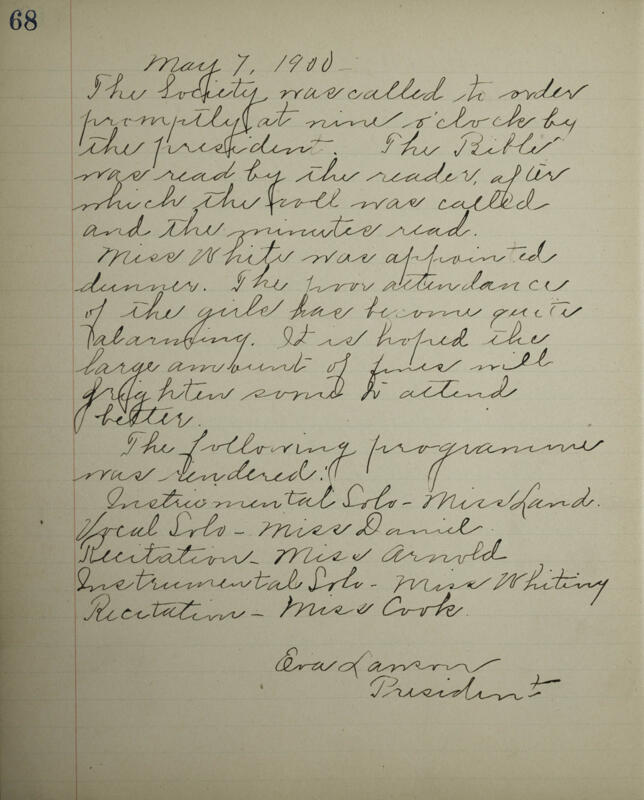 68
May 7, 1900
The Society was called to order
promptly at nine o'clock by
the president. The Bible
was read by the reader, after
which the roll was called
and the minutes read.
Miss White was appointed
dunner. The poor attendance
of the girls has become quite
alarming. It is hoped the
large amount of fines will
frighten some to attend
better.
The following programme
was rendered:
Instrumental Solo - Miss Land.
Vocal Solo - Miss Daniel
Recitation - Miss Arnold
Instrumental Solo - Miss Whiting
Recitation - Miss Cook.
Eva
President